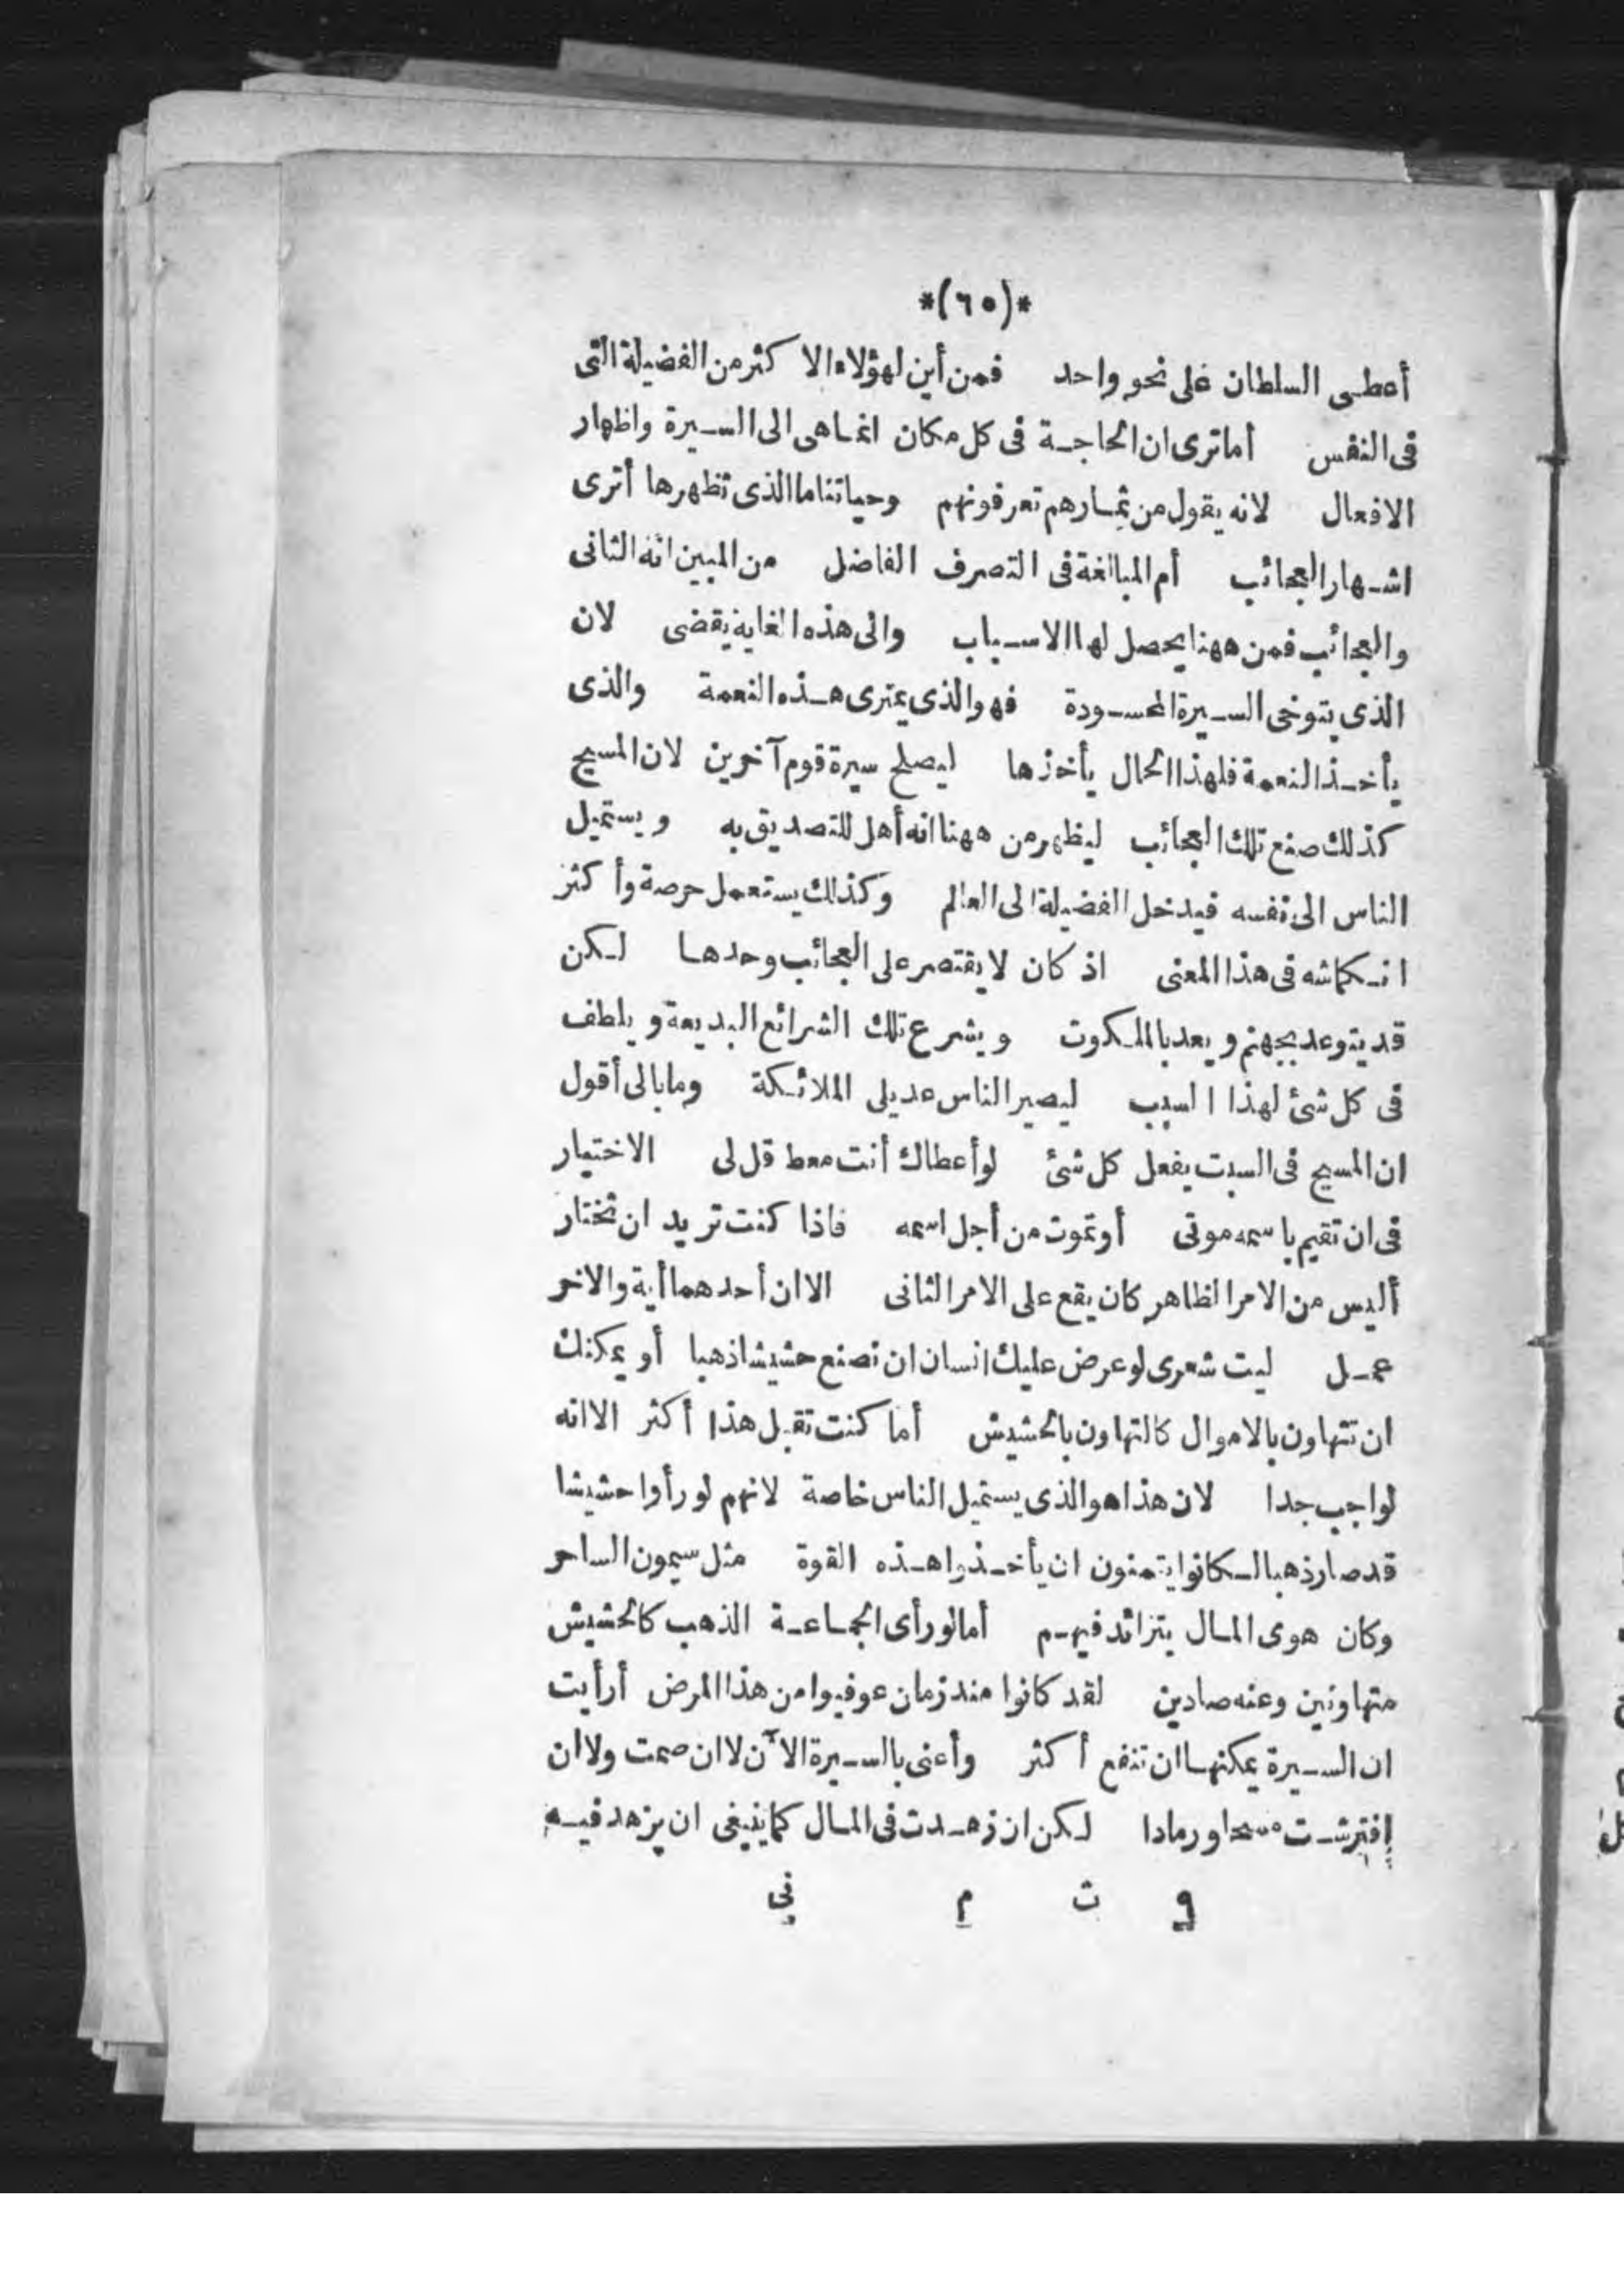 *(٦٥)*
أعطى السلطان على نحو واحد فمن أين لهؤلاء الاكثر من الفضيلة التى
فى النفس أما ترى ان الحاجة فى كل مكان انما هى الى السيرة واظهار
الافعال لانه يقول من ثمارهم تعرفونهم وحياتنا ما الذى تظهرها أترى
اشهار العجائب أم المبالغة فى التصرف الفاضل من المبين انه الثانى
والعجائب فمن ههنا يحصل لها الاسباب والى هذه الغاية يقضى لان
الذى يتوخى السيرة المحسودة فهو الذى يمترى هذه النعمة والذى
يأخذ النعمة فلهذا الحال يأخذها ليصلح سيرة قوم آخرين لان المسيح
كذلك صنع تلك العجائب ليظهر من ههنا انه أهل للتصديق به ويستميل
الناس الى نفسه فيدخل الفضيلة الى العالم وكذلك يستعمل حرصة وأكثر
انكماشه فى هذا المعنى اذ كان لا يقتصر على العجائب وحدها لكن
قد يتوعد بجهنم ويعد بالملكوت ويشرع تلك الشرائع البديعة ويلطف
فى كل شئ لهذا السبب ليصير الناس عديلى الملائكة وما بالى أقول
ان المسيح فى السبت يفعل كل شئ لو أعطاك أنت معط قل لى الاختيار
فى ان تقيم باسمه موتى أو تموت من أجل اسمه فاذا كنت تريد ان تختار
أليس من الامر الظاهر كان يقع على الامر الثانى الا ان أحدهما أية والاخر
عمل ليت شعرى لو عرض عليك انسان ان تصنع حشيشا ذهبا أو يمكنك
ان تتهاون بالاموال كالتهاون بالحشيش أما كنت تقبل هذا أكثر الا انه
لواجب جدا لان هذا هو الذى يستميل الناس خاصة لانهم لو رأوا حشيشا
قد صار ذهبا لكانوا يتمنون ان يأخذوا هذه القوة مثل سيمون الساحر
وكان هوى المال يتزائد فيهم أما لو رأى الجماعة الذهب كالحشيش
متهاونين وعنه صادين لقد كانوا مند زمان عوفيوا من هذا المرض أرأيت
ان السيرة يمكنها ان تنفع أكثر وأعنى بالسيرة الآن لا ان صمت ولا ان
افترشت مسحا ورمادا لكن ان زهدت فى المال كما ينبغى ان يزهد فيه
و ت م نى